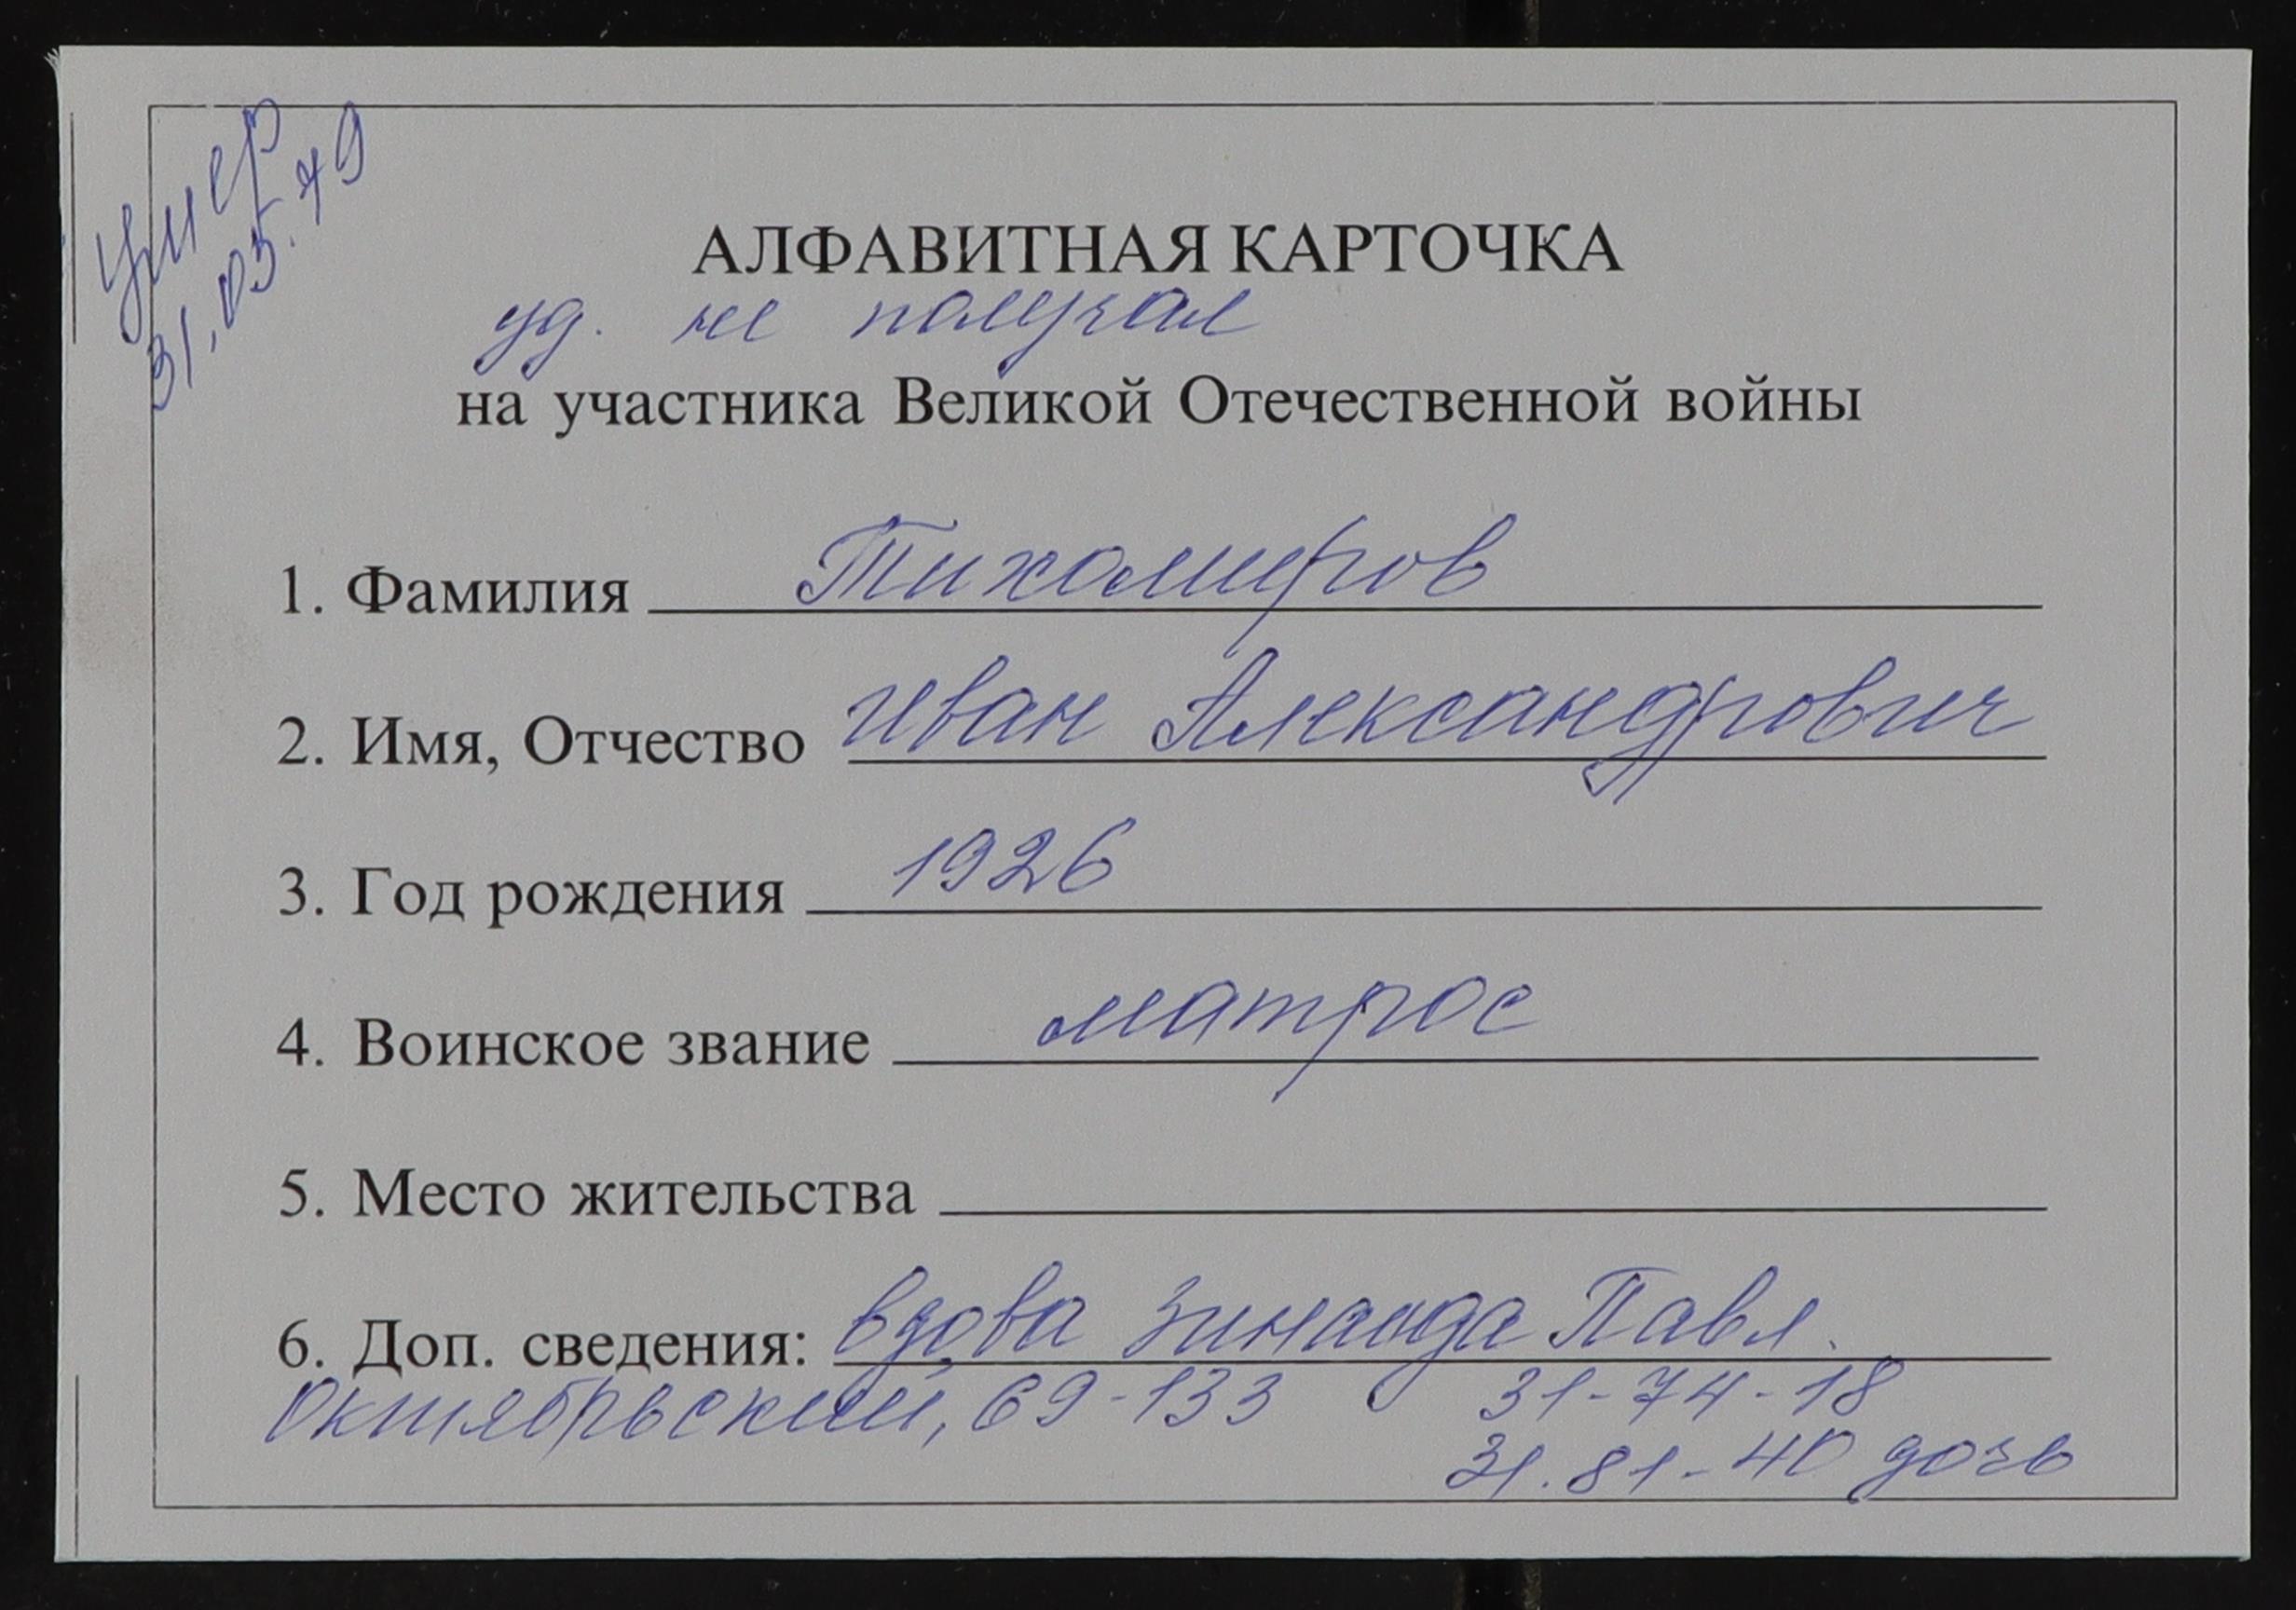 умер
31.05.79
АЛФАВИТНАЯ КАРТОЧКА
уд. не получал
на участника Великой Отечественной войны
1. Фамилия Тихомиров
2. Имя, Отчество Иван Александрович
3. Год рождения 1926
4. Воинское звание матрос
5. Место жительства
6. Доп. сведения: вдова Зинаида Павл.
Октябрьский, 69-133 31-74-18
31.81-40 дочь